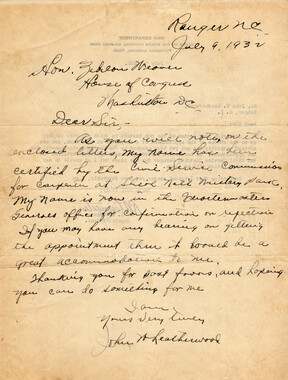 Ranger N.C.
July 9, 1932
Hon. Zebulon Weaver
House of Congress
Washington DC
Dear Sir,-
As you will note, on the
enclosed letters, my name has been
certified by the Civil Service Commission
for Carpenter at Shiloh Natl Military Park.
My name is now in the Quartermaster
Generals office for confirmation or rejection
If you may have any bearing on getting
the appointment thru it would be a
great accommodation to me.
Thanking you for past favors, and hoping
you can do something for me
I am
Yours Very Truly
John W Leatherwood